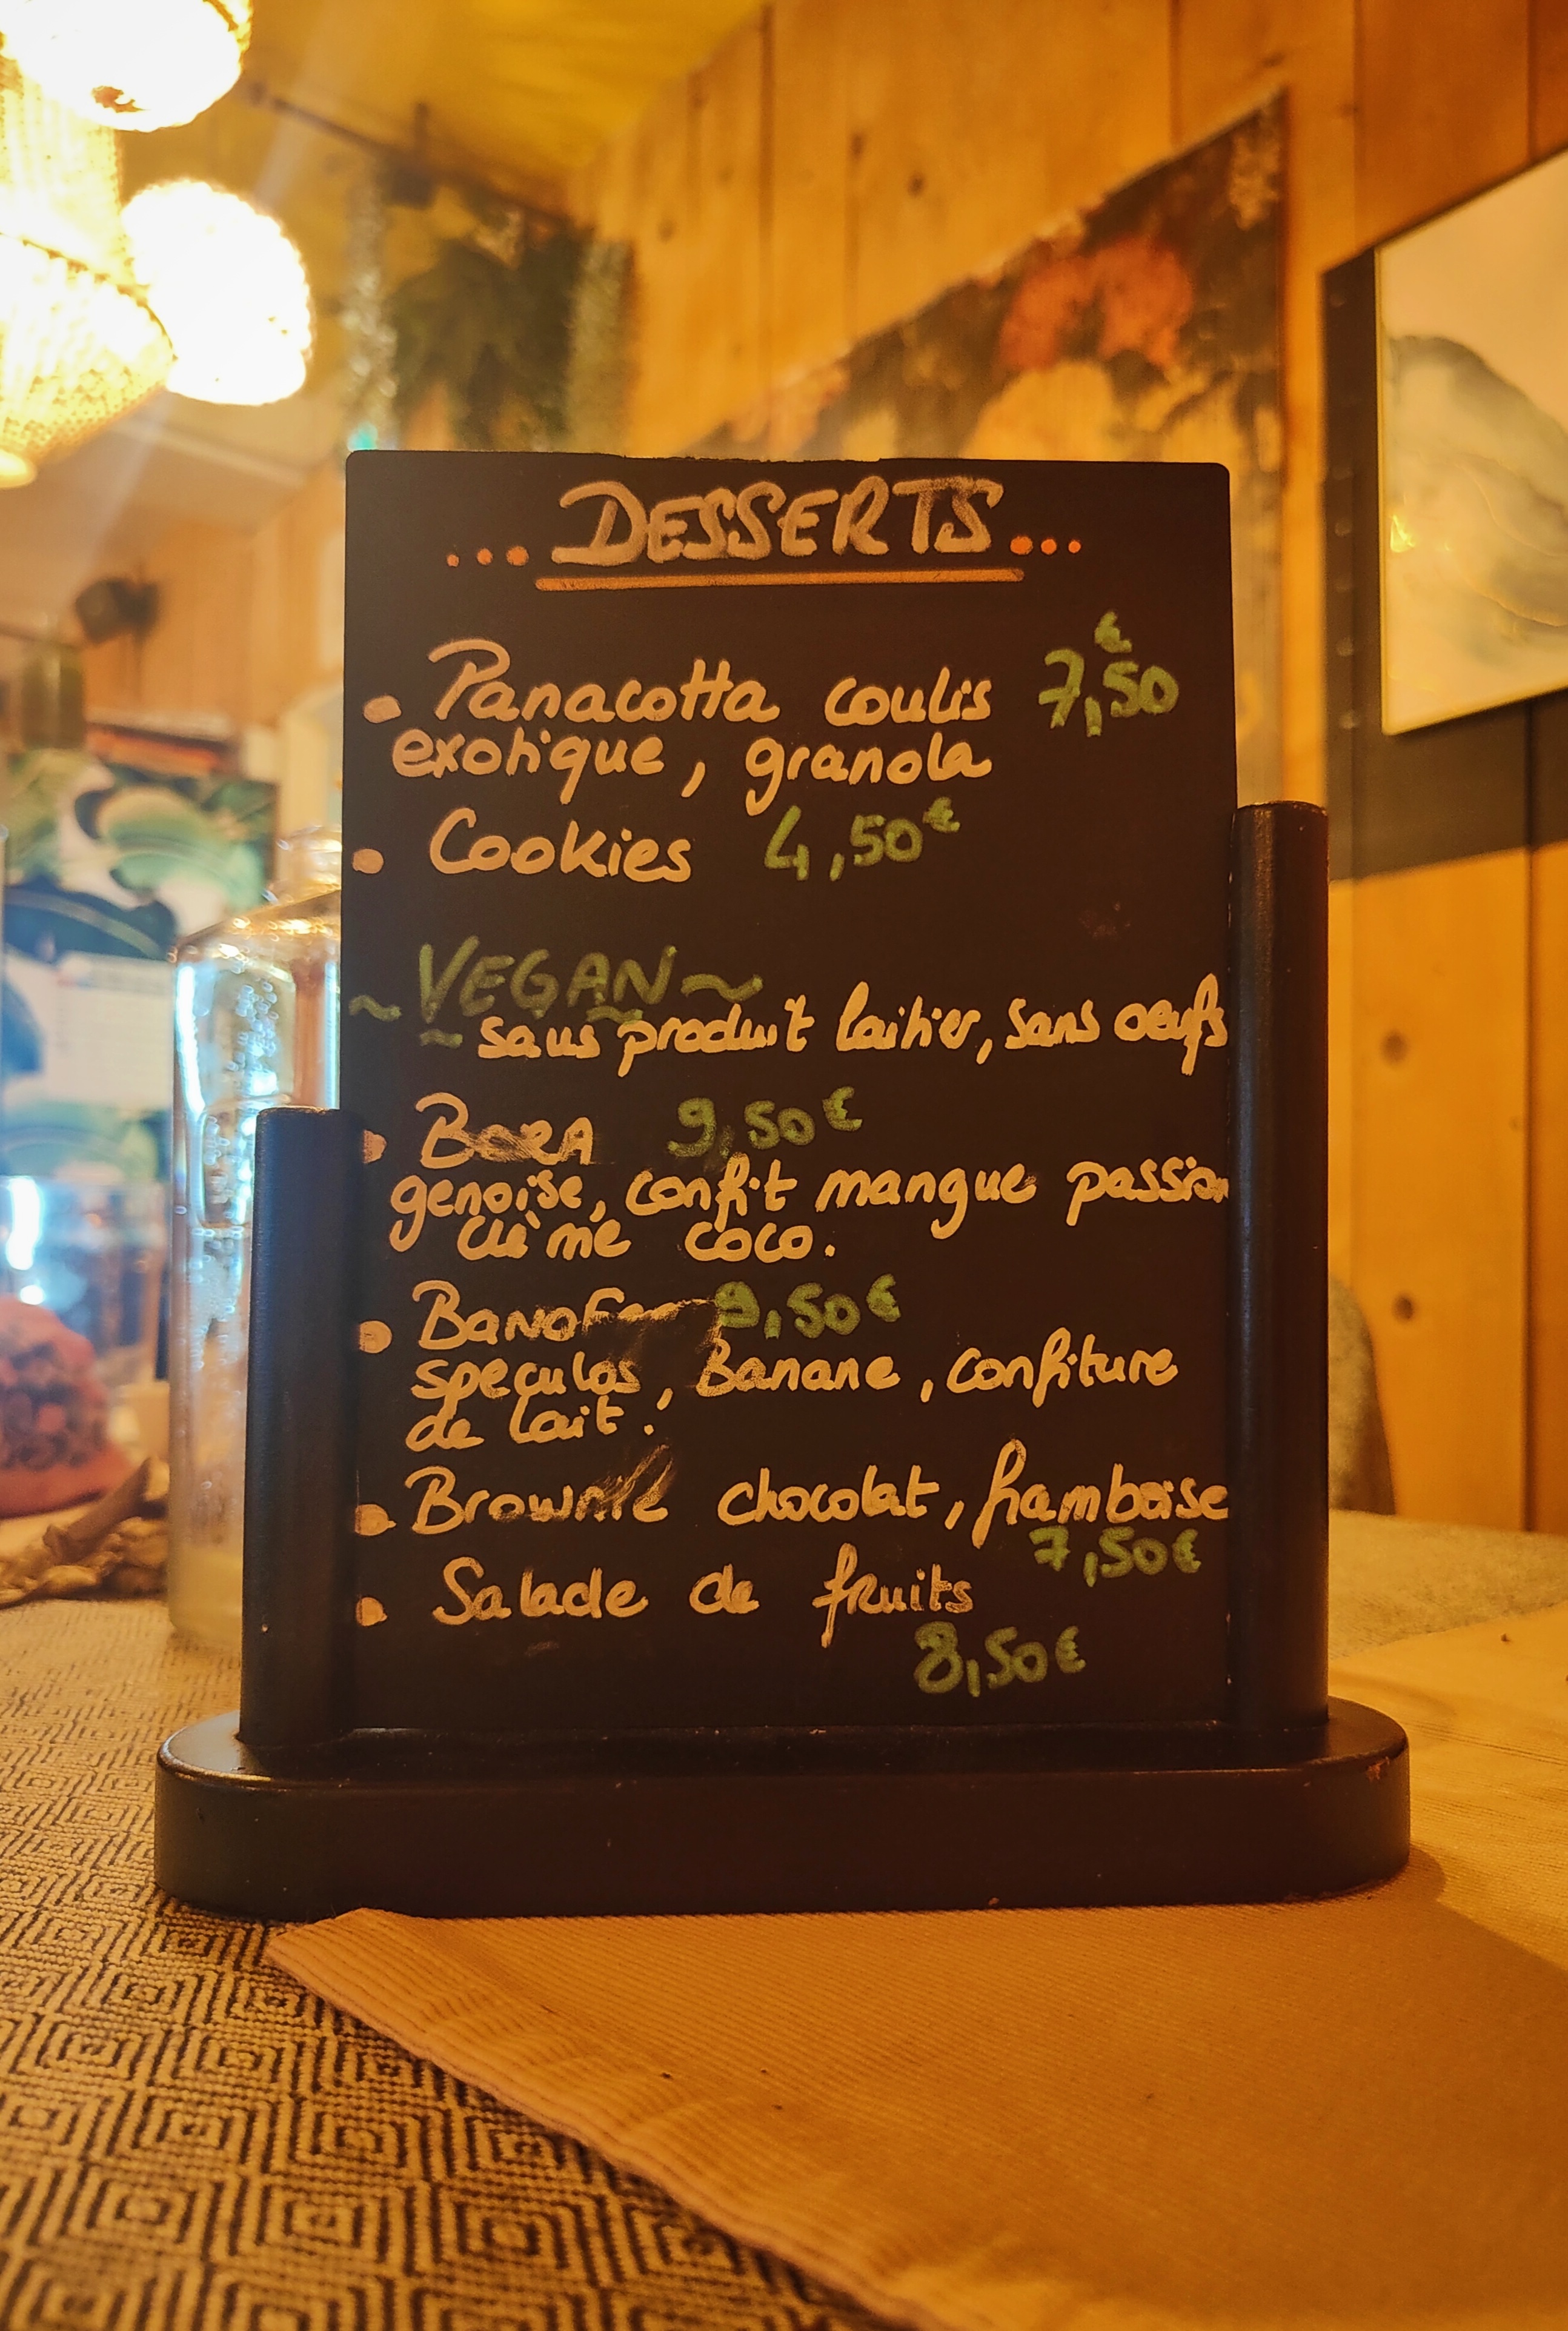 ...DESSERTS...
• Panacotta coulis 7,50€
exotique, granola
• Cookies 4,50€
~VEGAN~
~ sans produit laitier, sans oeufs
• BORA 9,50€
genoise, confit mangue passion
crème coco.
• 9,50€
speculos, Banane, confiture
de lait.
• Brownie chocolat, framboise
7,50€
• Salade de fruits
8,50€